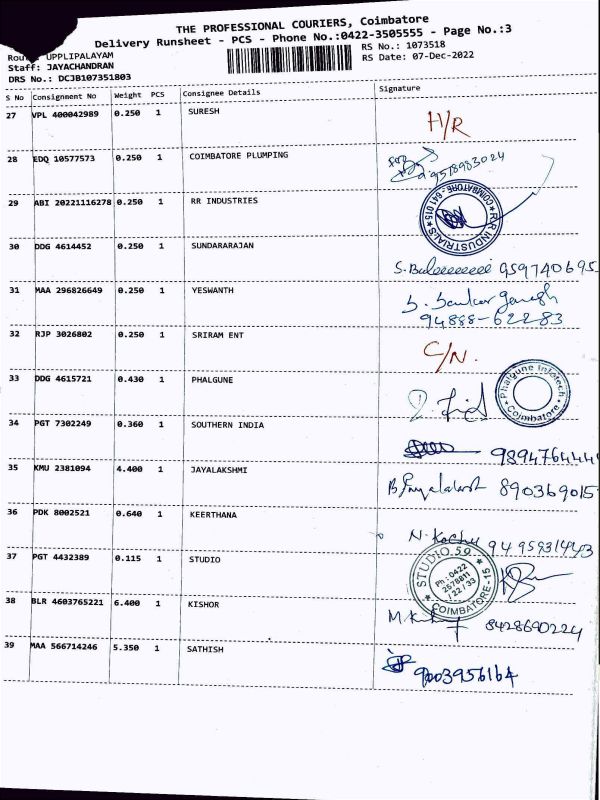 THE PROFESSIONAL COURIERS, Coimbatore
Delivery Runsheet - PCS - Phone No.:0422-3505555 - Page No.:3
UPPLIPALAYAM
RS No.: 1073518
Staff: JAYACHANDRAN
RS Date: 07-Dec-2022
DRS No.: DCJB107351803
S No Consignment No Weight PCS Consignee Details Signature
27 VPL 400042989 0.250 1 SURESH H/R
28 EDQ 10577573 0.250 1 COIMBATORE PLUMPING
9578983024
29 ABI 20221116278 0.250 1 RR INDUSTRIES
RR INDUSTRIALS ★ COIMBATORE - 641 015 ★
30 DDG 4614452 0.250 1 SUNDARARAJAN
959740695
31 MAA 296826649 0.250 1 YESWANTH
S. Sankar Ganesh
94888-62283
32 RJP 3026802 0.250 1 SRIRAM ENT C/N.
33 DDG 4615721 0.430 1 PHALGUNE
Phalgune Infotech ★ Coimbatore ★
34 PGT 7302249 0.360 1 SOUTHERN INDIA
989476444
35 KMU 2381094 4.400 1 JAYALAKSHMI
890369015
36 PDK 8002521 0.640 1 KEERTHANA
37 PGT 4432389 0.115 1 STUDIO
★ STUDIO.59 ★ COIMBATORE-15
Ph : 0422
2578811
/ 22 / 33
38 BLR 4603765221 6.400 1 KISHOR
8428690224
39 MAA 566714246 5.350 1 SATHISH
9003956164